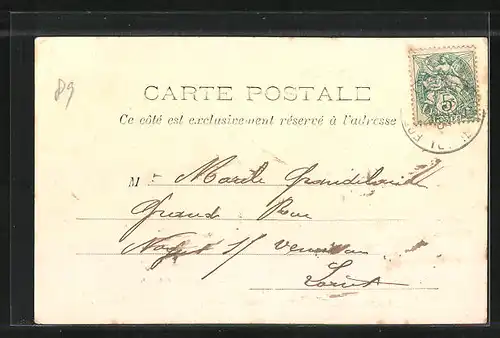 89
CARTE POSTALE
Ce côté est exclusivement réservé à l'adresse
5
M
Grande Rue
Nogent s/ Vernisson
Loiret